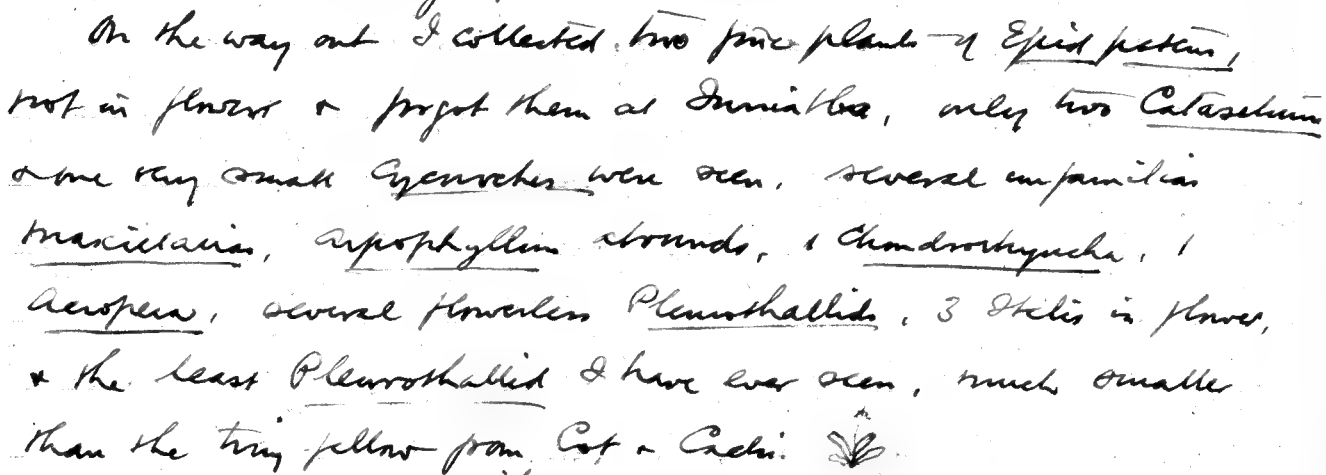 On the way out I collected two fine plants of Epid patens,
not in flower & forgot them at Turrialba, only two Catasetum
& one very small Cycnoches were seen, several unfamiliar
Maxillarias, Arpophyllum abounds, 1 Chondrorhyncha, 1
Acropera, several flowerless Pleurothallids, 3 Stelis in flower,
& the least Pleurothallid I have ever seen, much smaller
than the tiny fellow from Cot & Cachi.